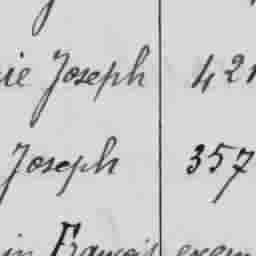 Joseph 42
Joseph 357
François exem